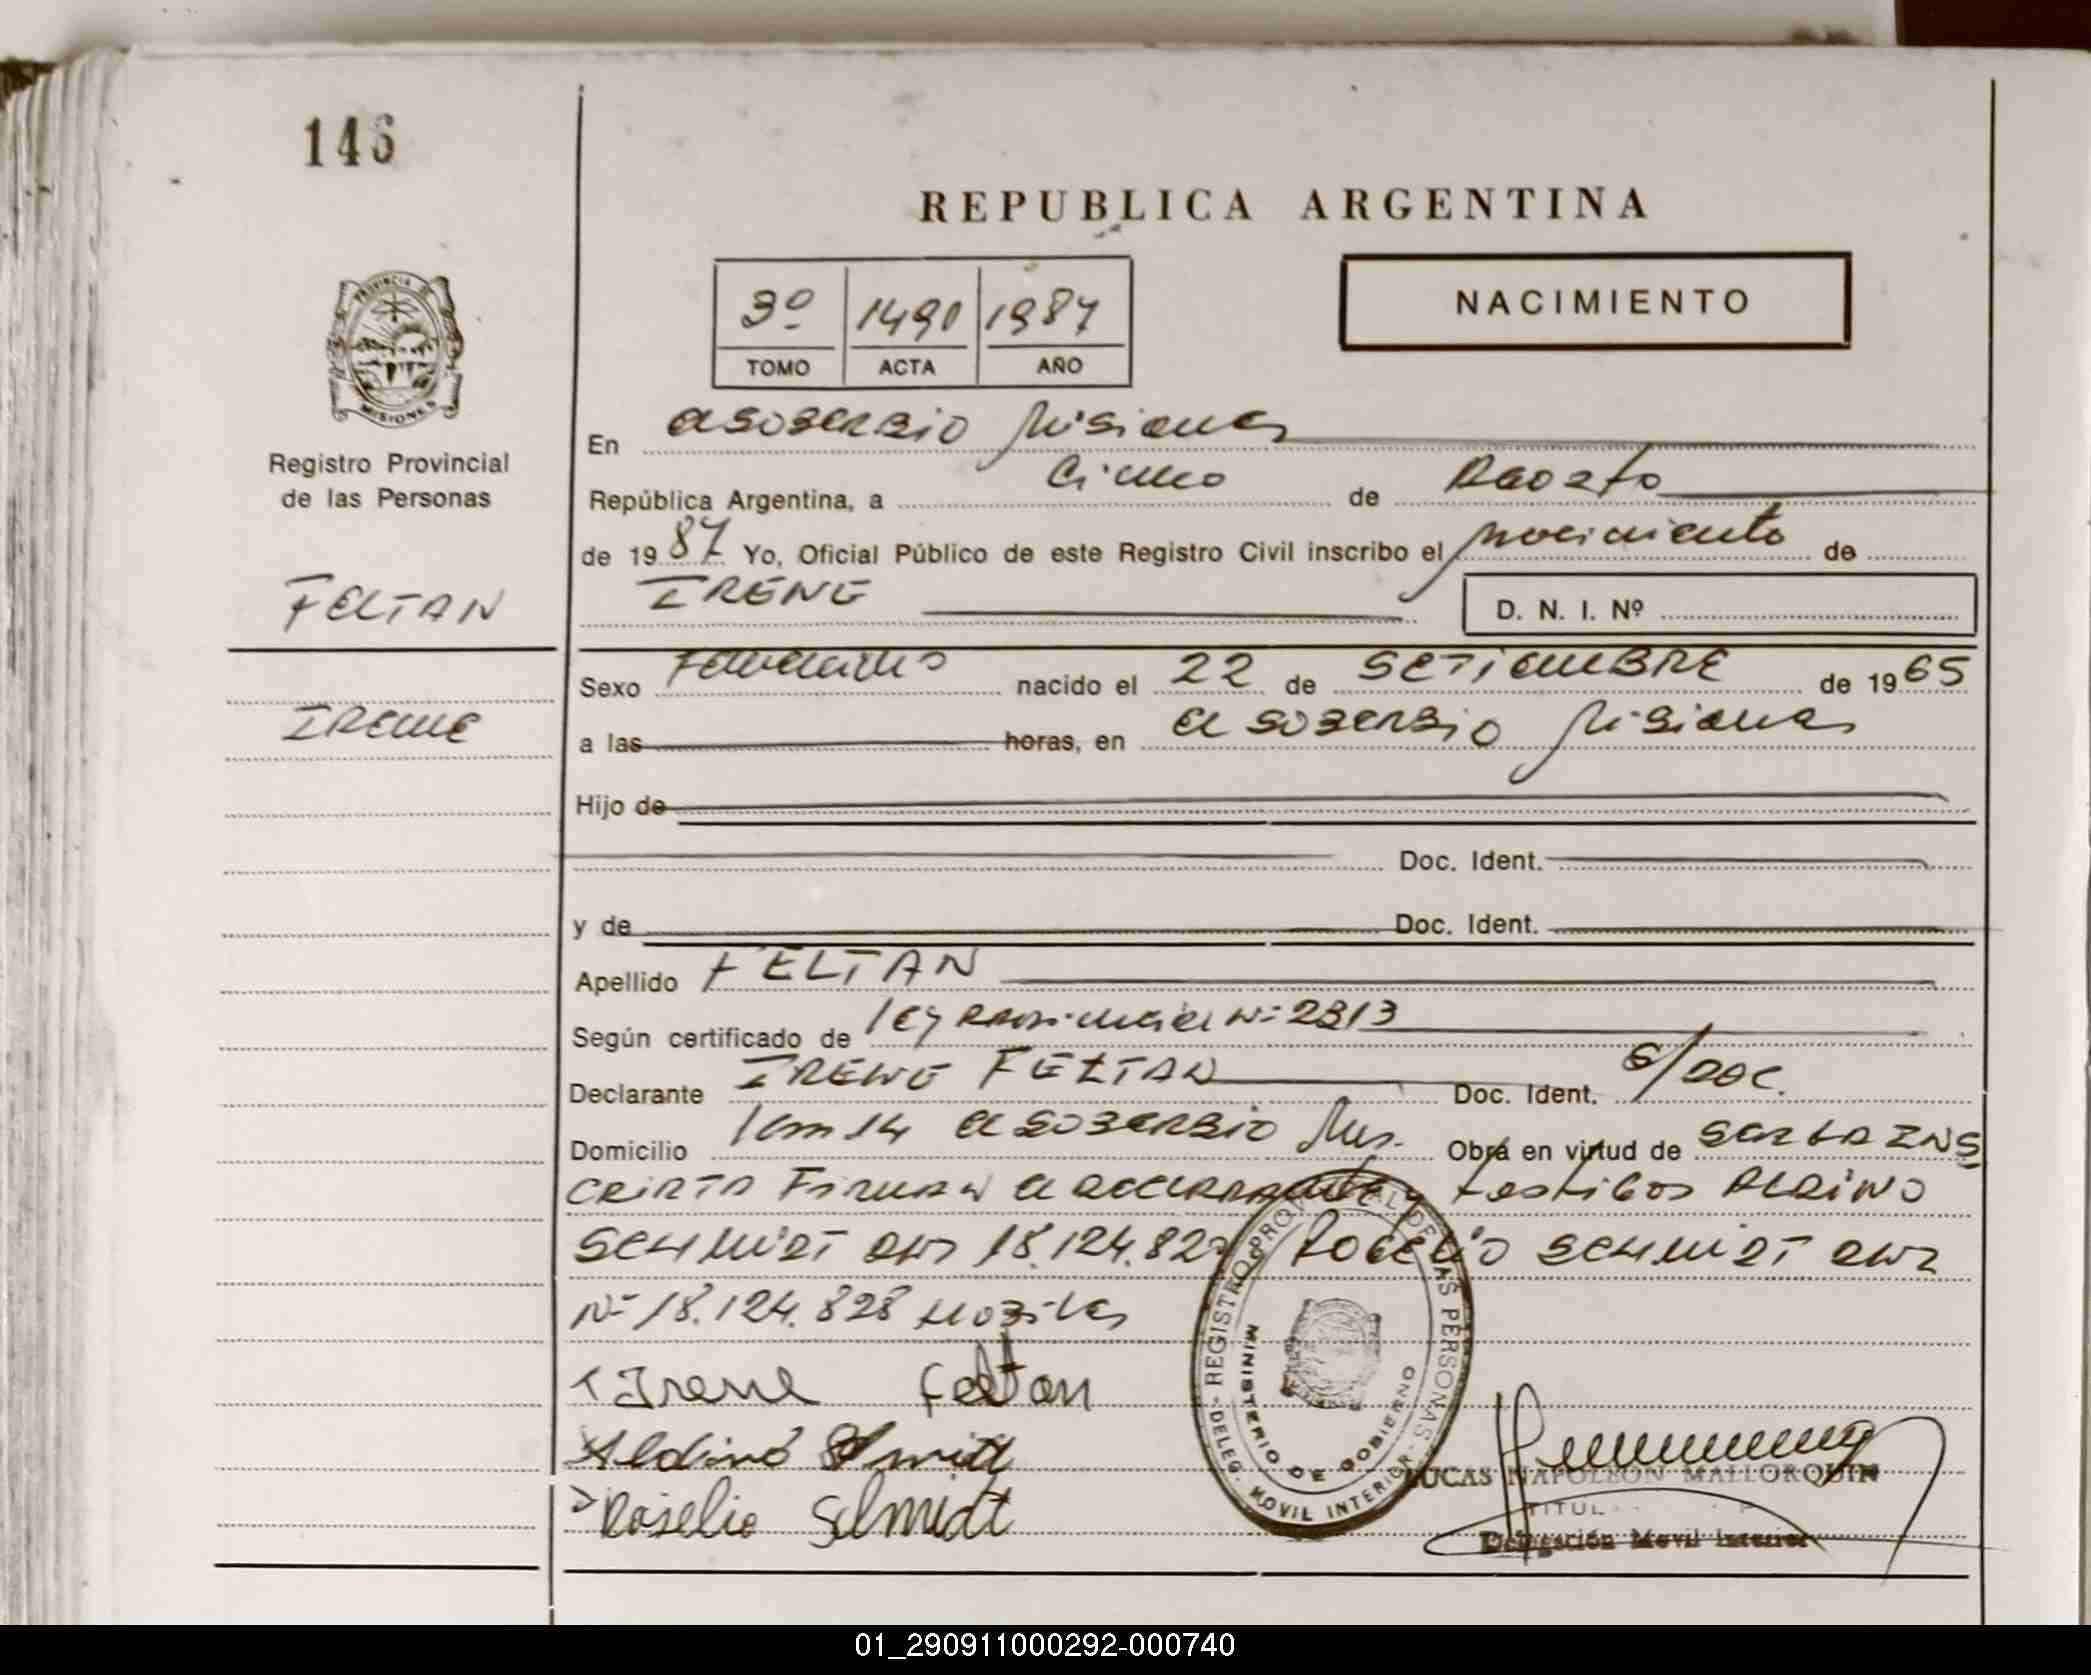 146
REPUBLICA ARGENTINA
3º 1490 1987
TOMO ACTA AÑO
NACIMIENTO
PROVINCIA DE
MISIONES
Registro Provincial
de las Personas
FELTAN
IRENE
En el soberbio Misiones
República Argentina, a Cinco de Agosto
de 1987 Yo, Oficial Público de este Registro Civil inscribo el nacimiento de
IRENE D. N. I. Nº
Sexo Femenino nacido el 22 de SETIEMBRE de 1965
a las horas, en el soberbio Misiones
Hijo de
Doc. Ident.
y de Doc. Ident.
Apellido FELTAN
Según certificado de ley provincial Nº 2313
Declarante IRENE FELTAN Doc. Ident. S/DOC.
Domicilio km 14 el soberbio Mis. Obra en virtud de SER LA INS
CRIPTA Firman el declarante y testigos ALDINO
SCHMIDT DNI 18.124.82 Rogelio SCHMIDT DNI
Nº 18.124.828 Hábiles
Irene Feltan
Aldino Schmidt
Roselio Schmidt
DELEG. MOVIL INTERIOR - REGISTRO PROVINCIAL DE LAS PERSONAS
MINISTERIO DE GOBIERNO
LUCAS NAPOLEON MALLORQUIN
TITUL
Delegación Movil Interior
01_290911000292-000740